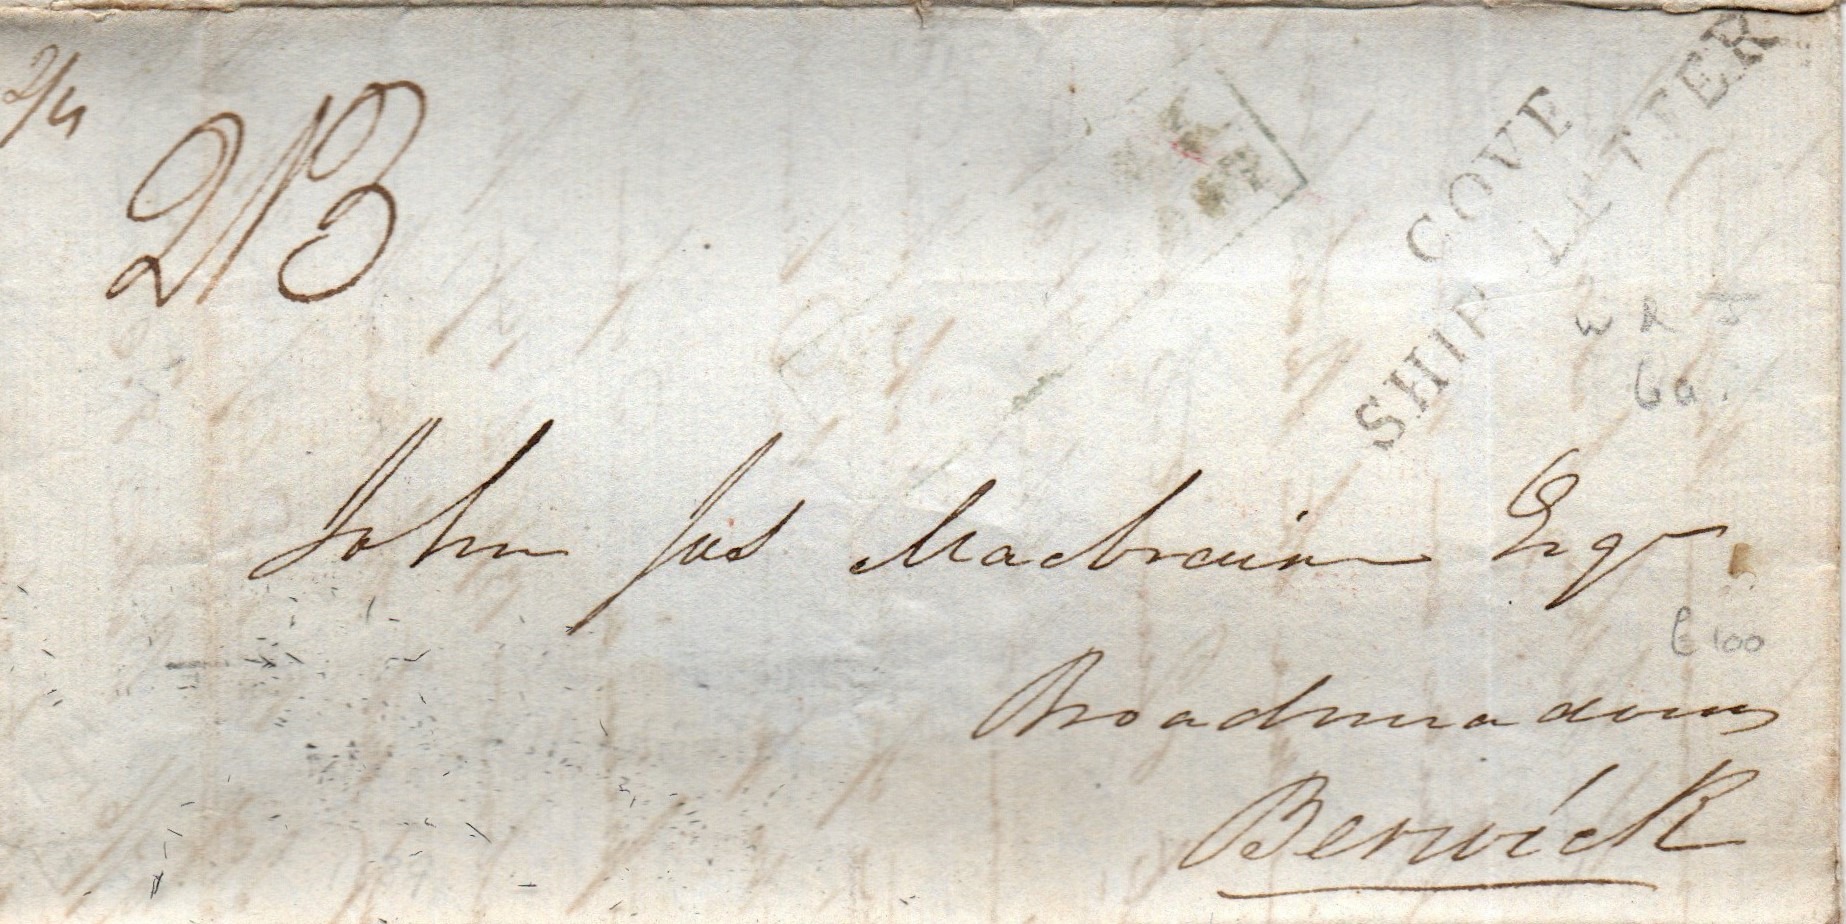 2/4
2/3
COVE
SHIP LETTER
W R
60.
John Jas Macbraire Esqr
Broadmeadows
£100
Berwick